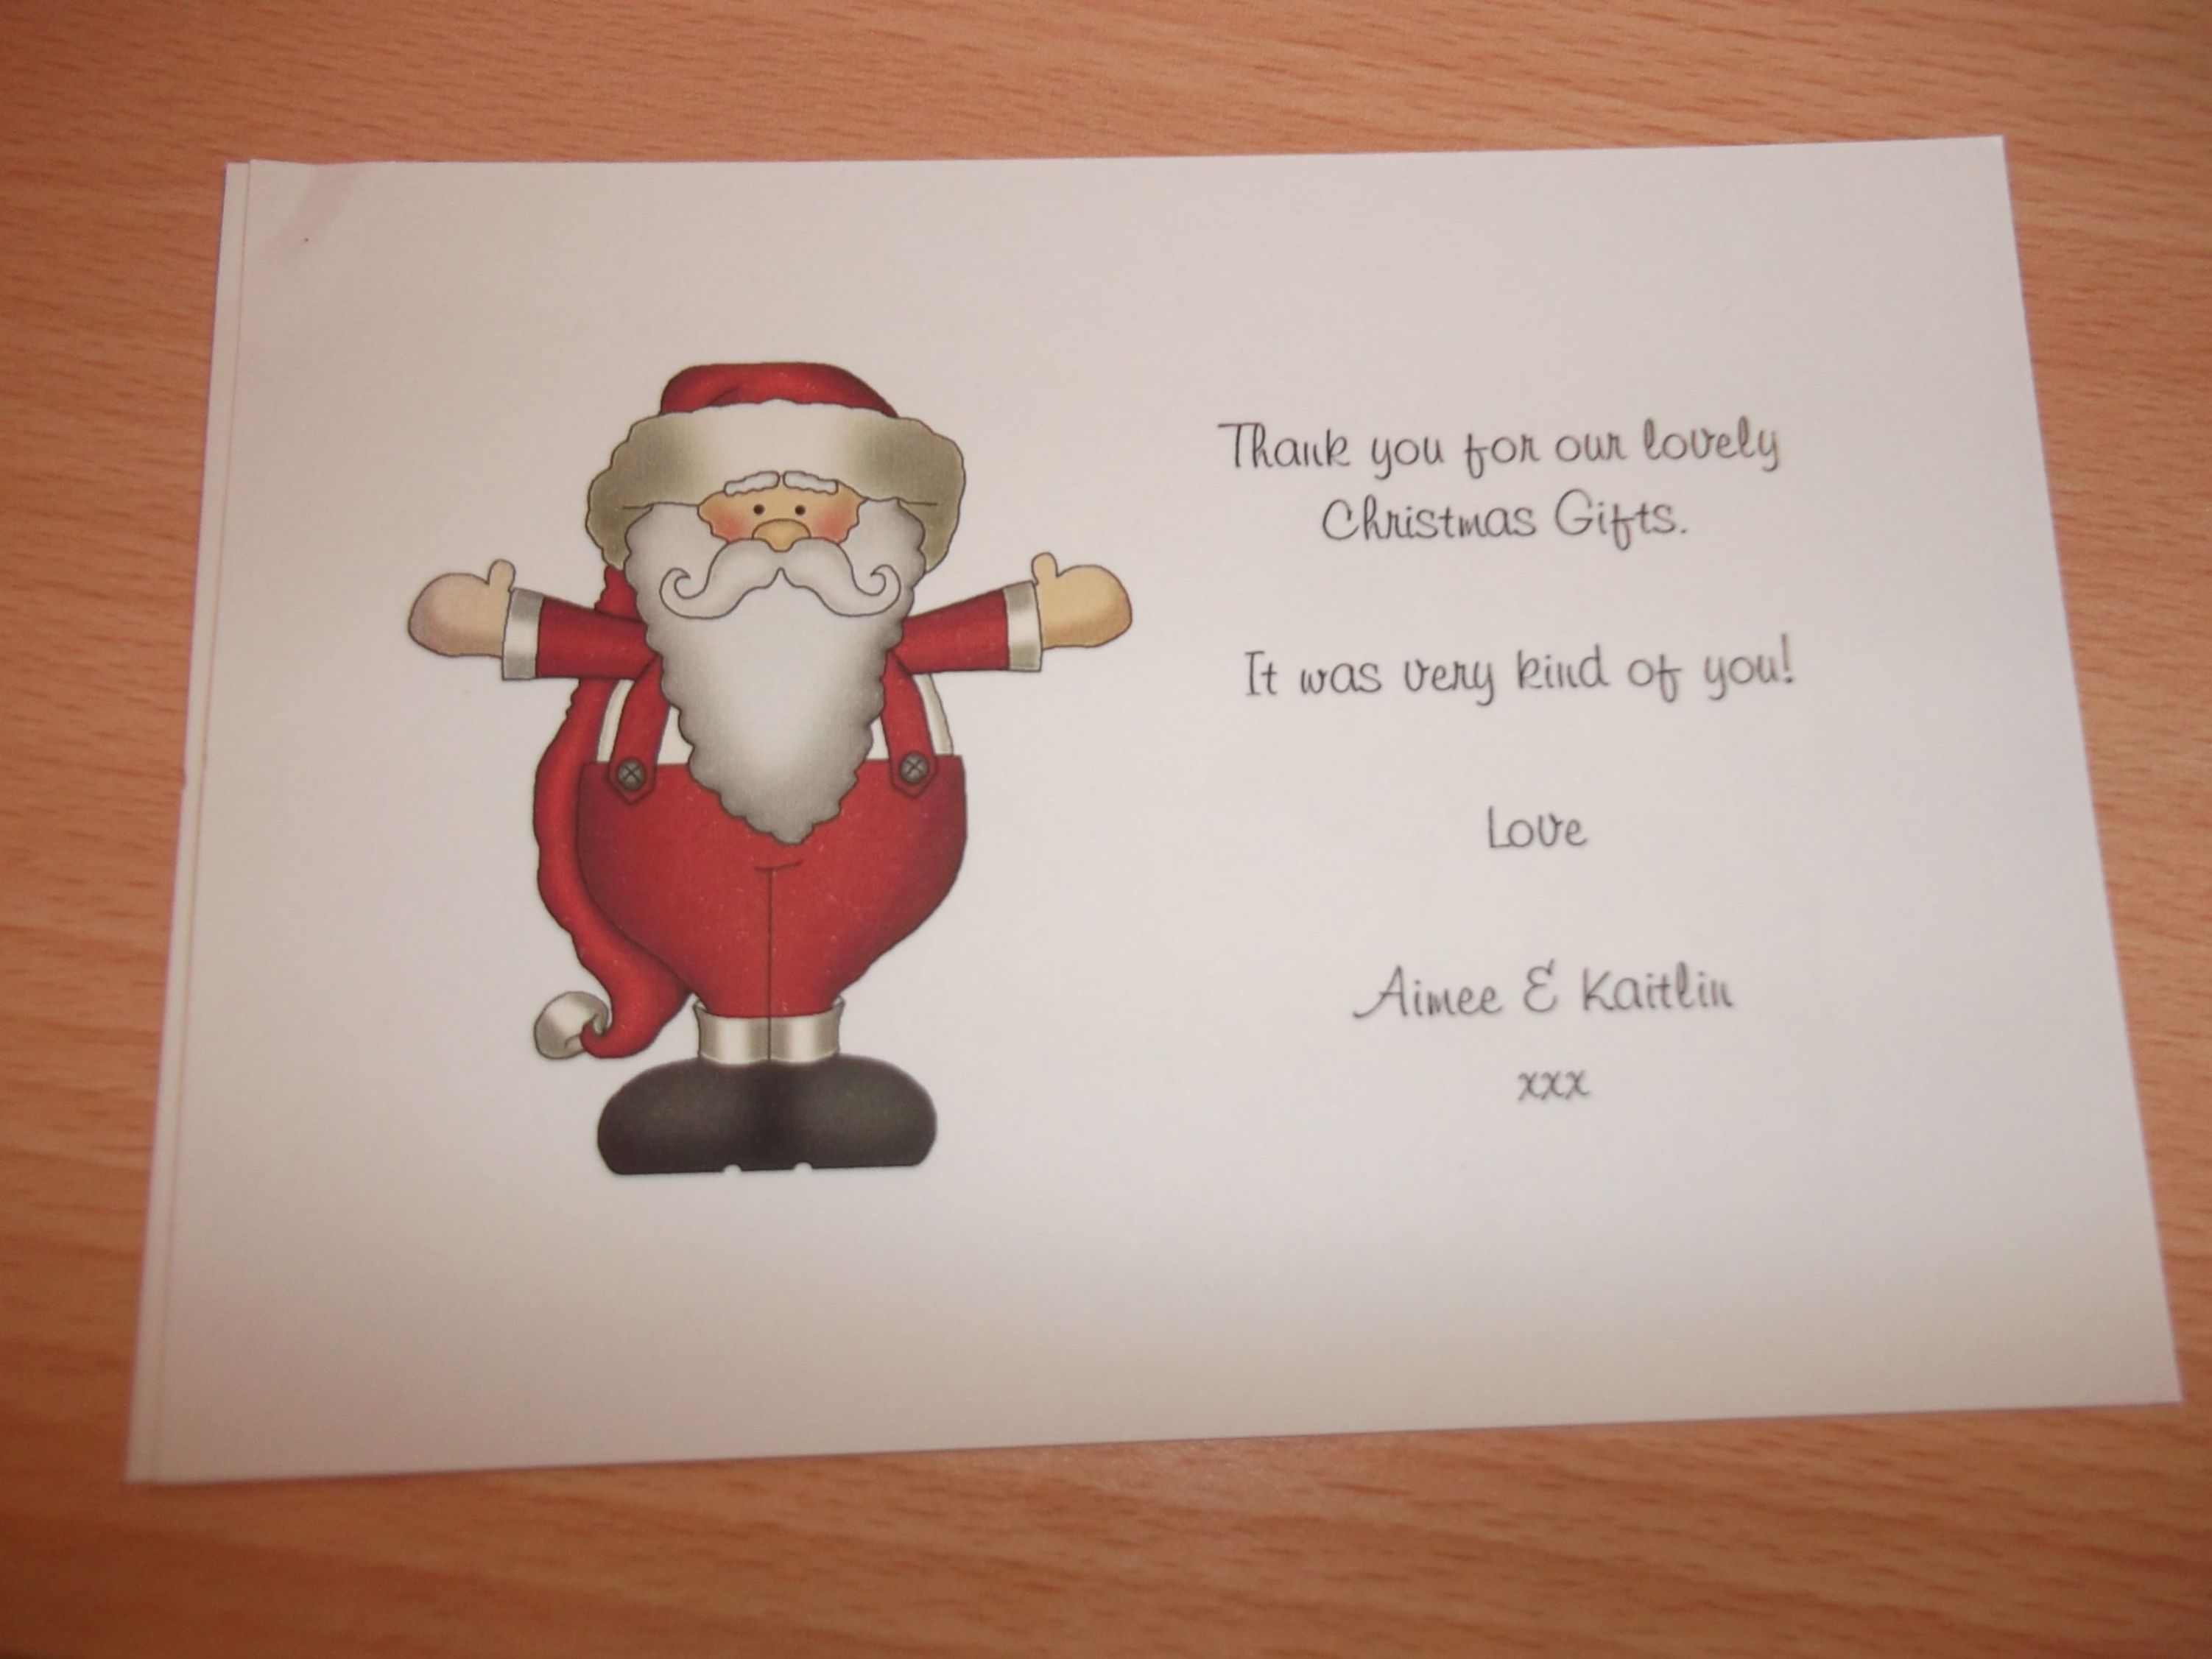 Thank you for our lovely
Christmas Gifts.
It was very kind of you!
Love
Aimee & Kaitlin
xxx